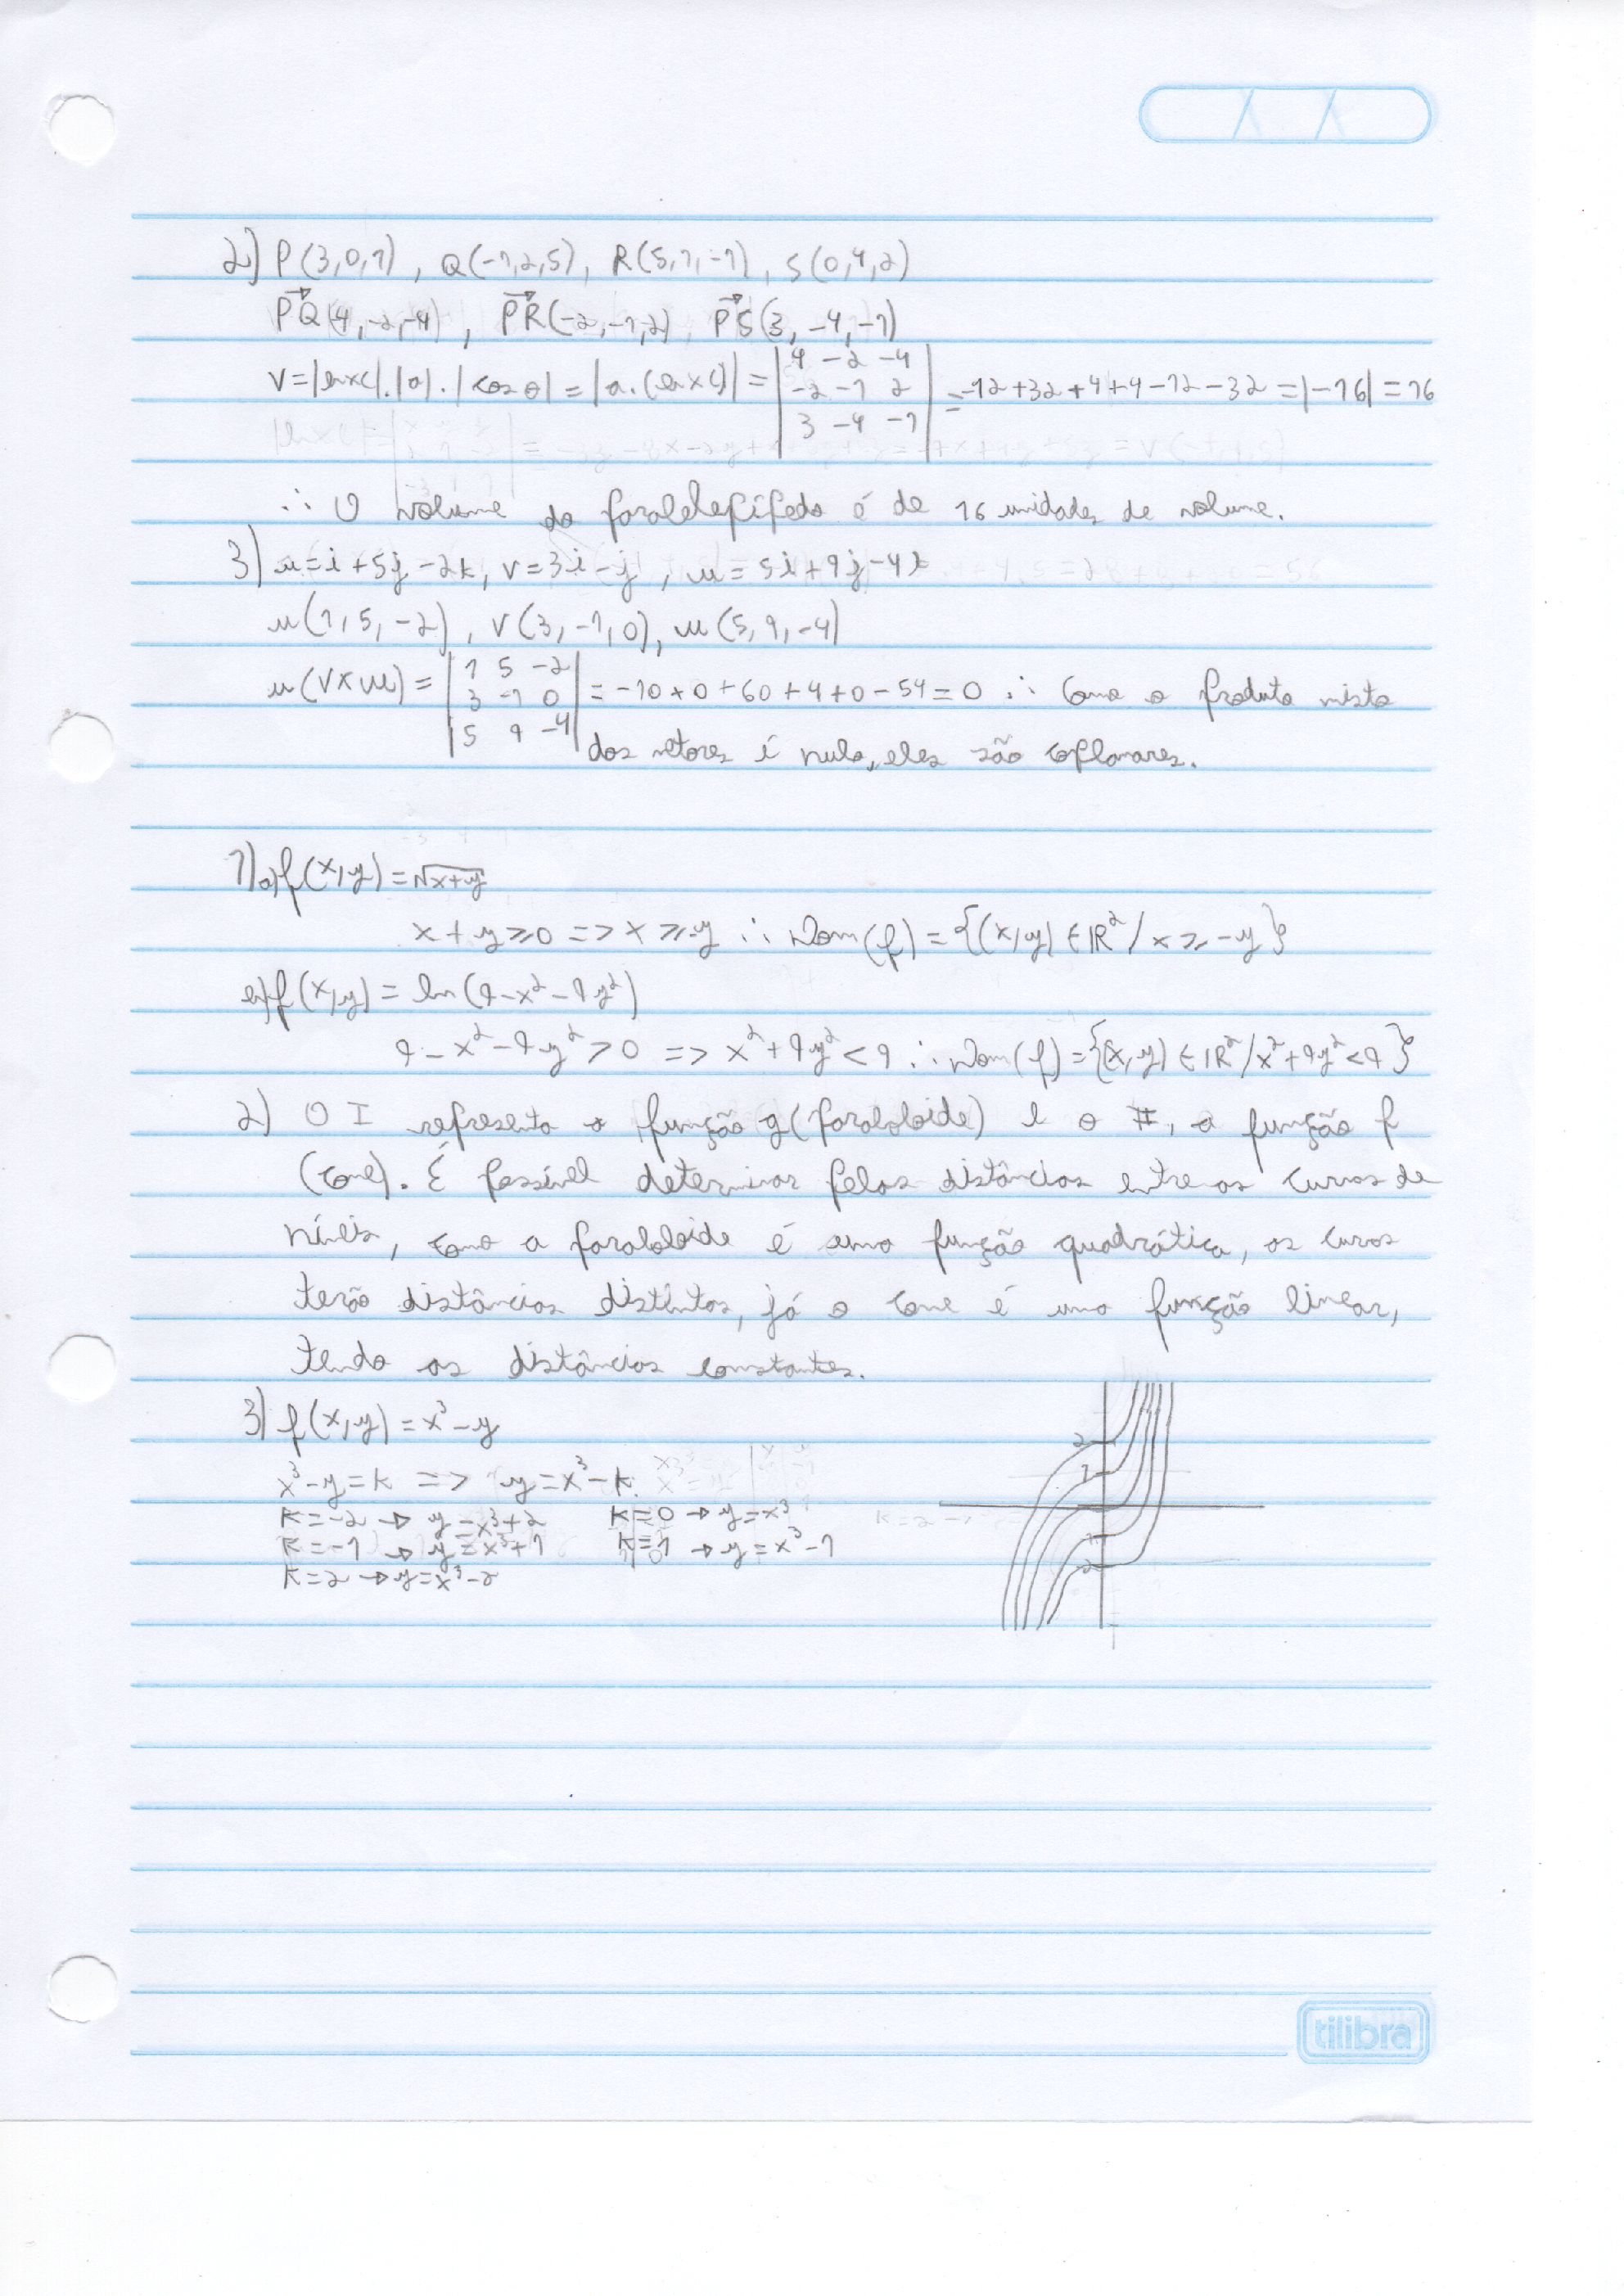 2) P(3,0,1), Q(-1,2,5), R(5,1,-1), S(0,4,2)
PQ(4,-2,-4), PR(-2,-1,2), PS(3,-4,-1)
V=|bxc|.|a|.|cos θ|=|a.(bxc)|=|4 -2 -4|=-12+32+4+4-12-32=|-16|=16
|-2 -1 2|
|3 -4 -1|
∴ O volume do paralelepípedo é de 16 unidades de volume.
3) u=i+5j-2k, v=3i-j, w=5i+9j-4k
u(1,5,-2), v(3,-1,0), w(5,9,-4)
u(vxw)=|1 5 -2|=-10+0+60+4+0-54=0 ∴ Como o produto misto
|3 -1 0|
|5 9 -4| dos vetores é nulo, eles são coplanares.
1) a) f(x,y)=√x+y
x+y≥0 => x≥-y ∴ Dom(f)={(x,y)∈IR²/x≥-y}
b) f(x,y)=ln(9-x²-9y²)
9-x²-9y²>0 => x²+9y²<9 ∴ Dom(f)={(x,y)∈IR²/x²+9y²<9}
2) O I representa a função g(paraboloide) e o II, a função f
(cone). É possível determinar pelas distâncias entre as curvas de
níveis, como a paraboloide é uma função quadrática, as curvas
terão distâncias distintas, já o cone é uma função linear,
tendo as distâncias constantes.
3) f(x,y)=x³-y
x³-y=k => y=x³-k
k=-2 → y=x³+2 k=0 → y=x³
k=-1 → y=x³+1 k=1 → y=x³-1
k=2 → y=x³-2
2
1
-1
-2
tilibra